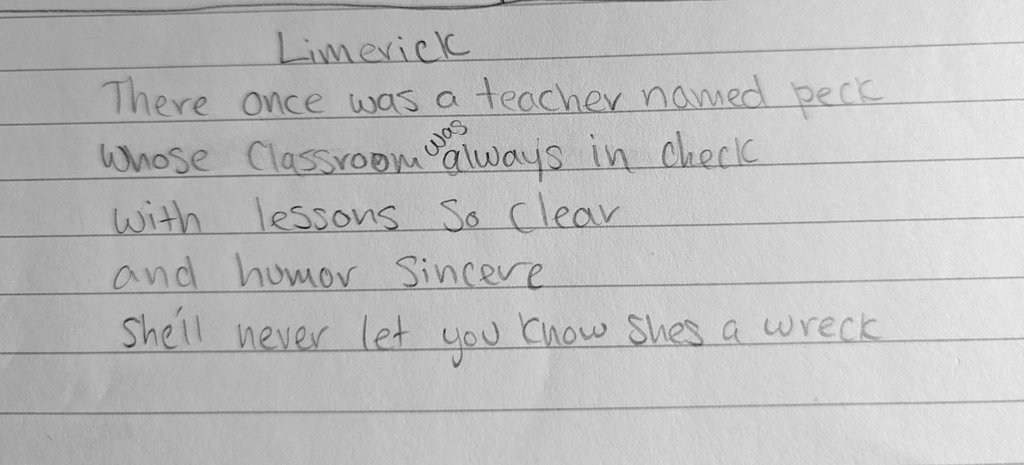 Limerick
There once was a teacher named peck
Whose Classroom was always in check
with lessons so clear
and humor sincere
She'll never let you know shes a wreck